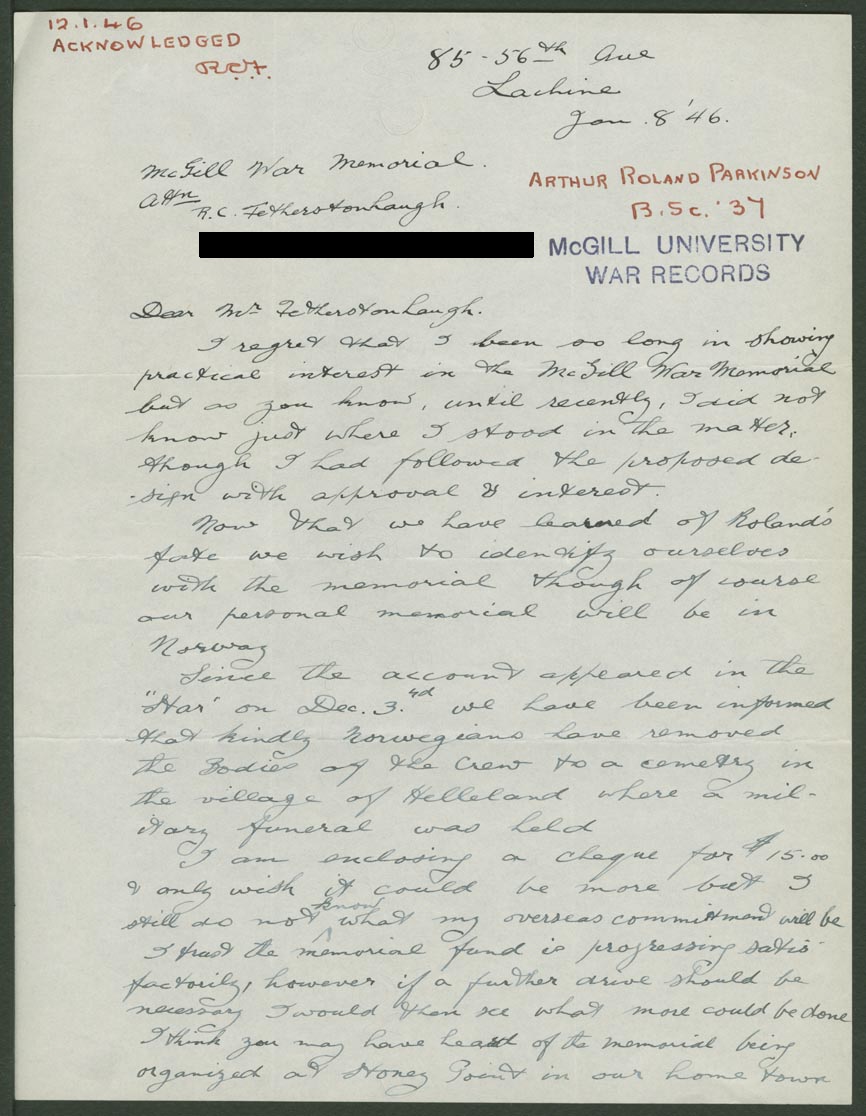 12.1.46
ACKNOWLEDGED
R.C.F.
85-56th Ave
Lachine
Jan. 8 '46.
McGill War Memorial.
Attn
R.C. Fetherstonhaugh.
ARTHUR ROLAND PARKINSON
B.Sc. '37
McGILL UNIVERSITY
WAR RECORDS
Dear Mr Fetherstonhaugh.
I regret that I been so long in showing
practical interest in the McGill War Memorial
but as you know, until recently, I did not
know just where I stood in the matter,
though I had followed the proposed de-
-sign with approval & interest.
Now that we have learned of Roland's
fate we wish to identify ourselves
with the memorial though of course
our personal memorial will be in
Norway
Since the account appeared in the
"Star" on Dec. 3.rd we have been informed
that kindly Norwegians have removed
the Bodies of the Crew to a cemetry in
the village of Helleland where a mil-
itary funeral was held
I am enclosing a cheque for $15.00
& only wish it could be more but I
still do not know what my overseas committment will be
I trust the memorial fund is progressing satis-
factorily, however if a further drive should be
necessary I would then see what more could be done
I think you may have heard of the memorial being
organized at Stoney Point in our home town